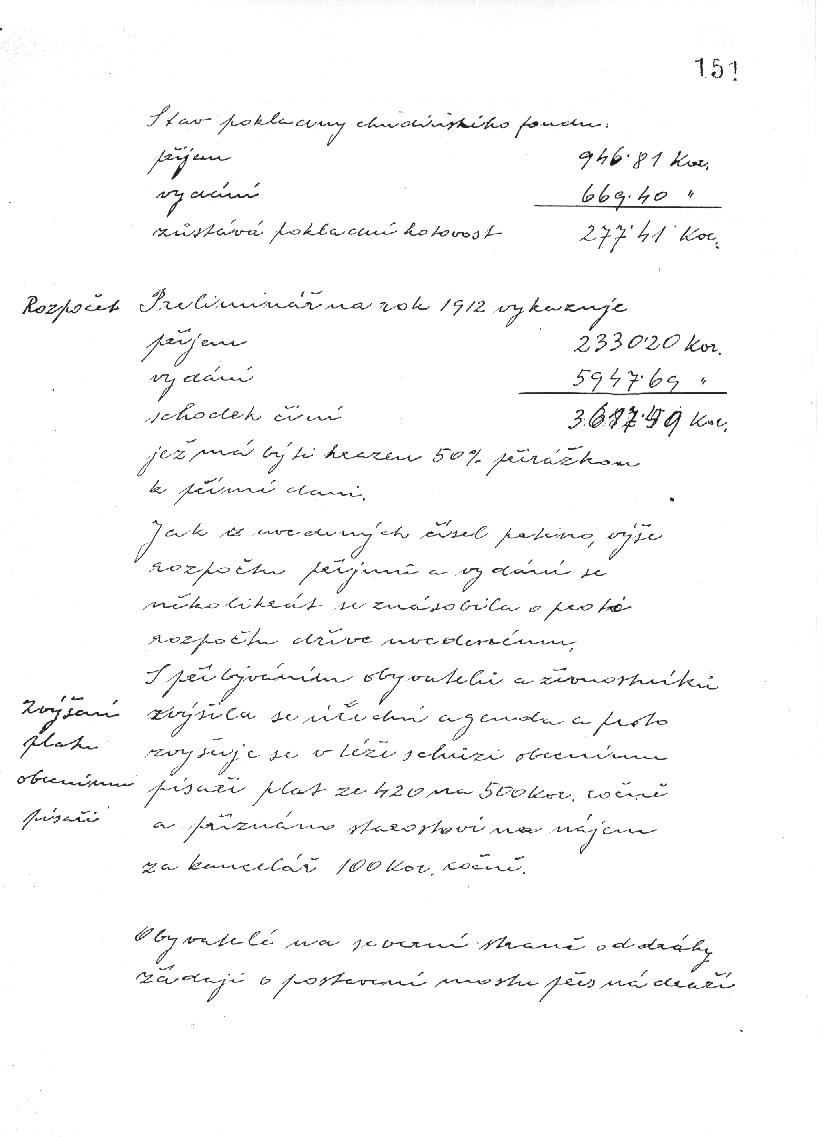 151
Stav pokladny chudinského fondu:
příjem 946·81 Kor.
vydání 669·40 "
zůstává pokladní hotovost 277·41 Kor.
Rozpočet Preliminář na rok 1912 vykazuje
příjem 2330·20 Kor.
vydání 5947·69 "
schodek činí Kor.
jež má býti hrazen 50% přirážkou
k přímé dani.
Jak z uvedených čísel patrno, výše
rozpočtu příjmů a vydání se
několikrát se znásobila o proti
rozpočtu dříve uvedenému.
S přibýváním obyvatelů a živnostníků
Zvýšení zvýšila se úřední agenda a proto
platu zvyšuje se v téže schůzi obecnímu
obecnímu písaři plat ze 420 na 500 Kor. ročně
písaři a přiznáno starostovi na nájem
za kancelář 100 Kor. ročně.
Obyvatelé na severní straně od dráhy
žádají o postavení mostu přes nádraží